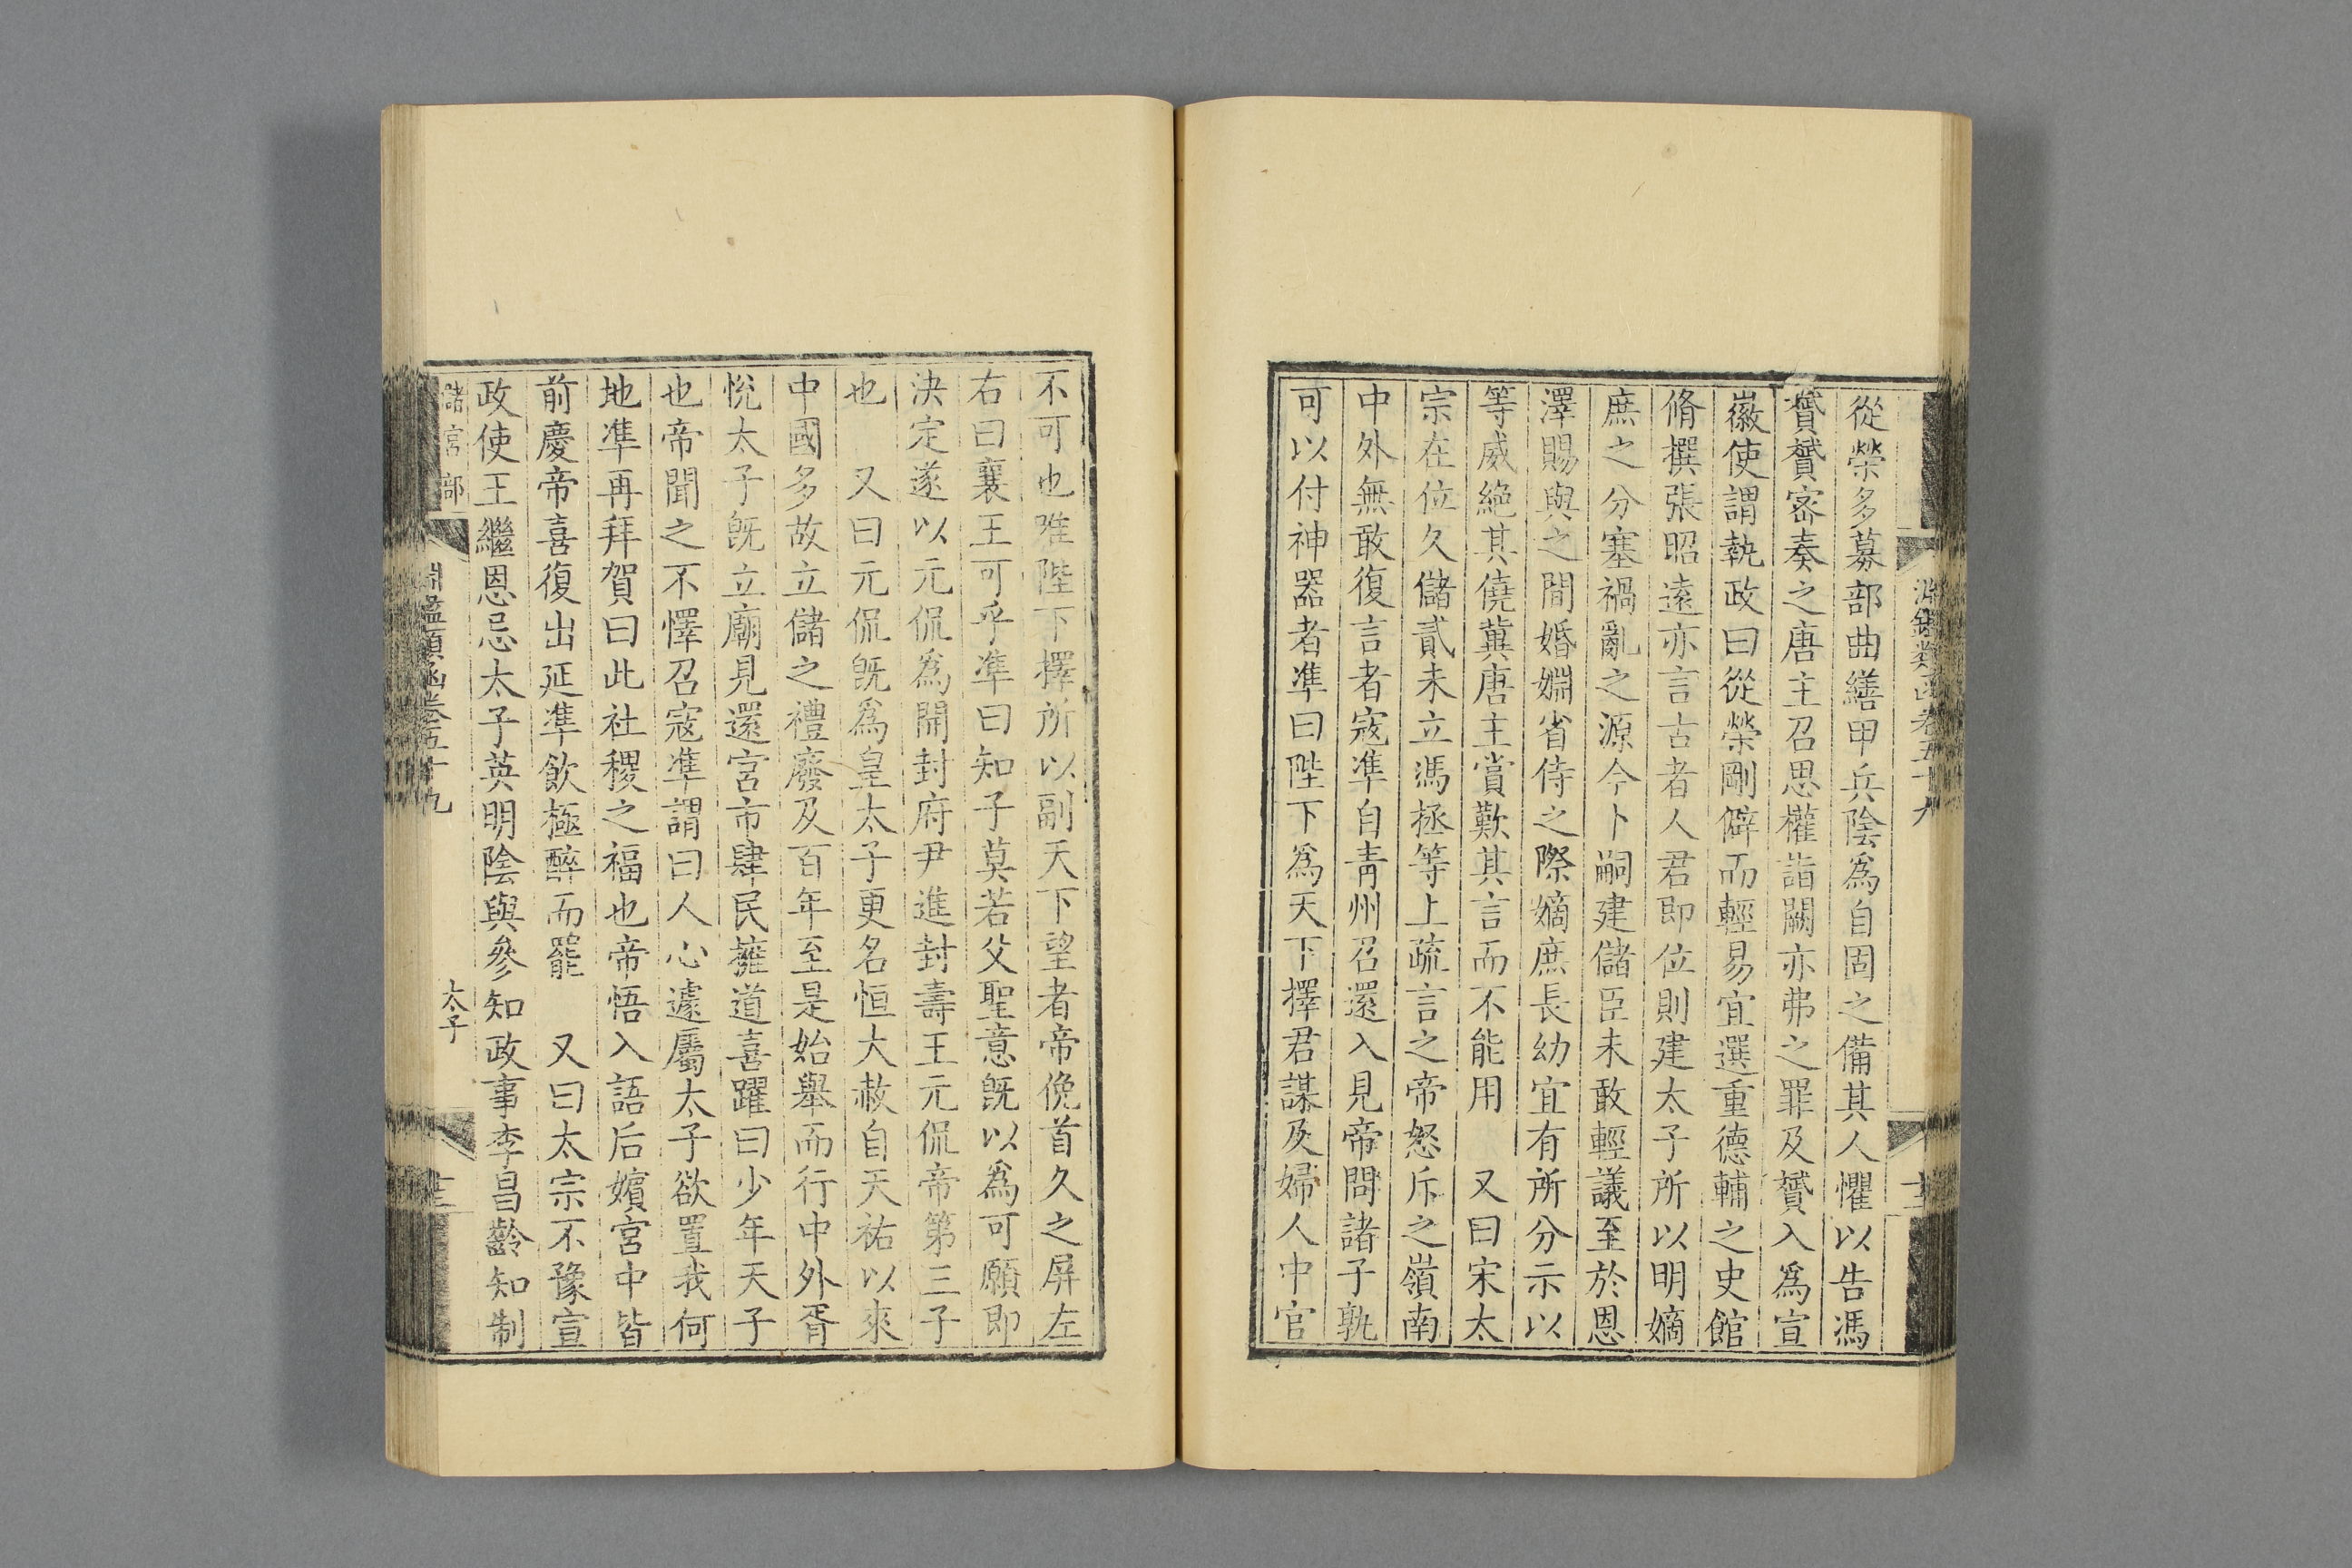 淵鑑類函卷五十九
從榮多募部曲繕甲兵陰爲自固之備其人懼以告馮
贇贇密奏之唐主召思權詣闕亦弗之罪及贇入爲宣
徽使謂執政曰從榮剛僻而輕易宜選重德輔之史館
脩撰張昭遠亦言古者人君即位則建太子所以明嫡
庶之分塞禍亂之源今卜嗣建儲臣未敢輕議至於恩
澤賜與之間婚姻省侍之際嫡庶長幼宜有所分示以
等威絶其僥冀唐主賞歎其言而不能用　又曰宋太
宗在位久儲貳未立馮拯等上疏言之帝怒斥之嶺南
中外無敢復言者寇準自青州召還入見帝問諸子孰
可以付神器者準曰陛下爲天下擇君謀及婦人中官
不可也唯陛下擇所以副天下望者帝俛首久之屏左
右曰襄王可乎準曰知子莫若父聖意旣以爲可願即
決定遂以元侃爲開封府尹進封壽王元侃帝第三子
也　又曰元侃旣爲皇太子更名恒大赦自天祐以來
中國多故立儲之禮廢及百年至是始舉而行中外胥
悅太子旣立廟見還宮市肆民擁道喜躍曰少年天子
也帝聞之不懌召寇準謂曰人心遽屬太子欲置我何
地準再拜賀曰此社稷之福也帝悟入語后嬪宮中皆
前慶帝喜復出延準飲極醉而罷　又曰太宗不豫宣
政使王繼恩忌太子英明陰與參知政事李昌齡知制
儲宮部
淵鑑類函卷五十九
太子